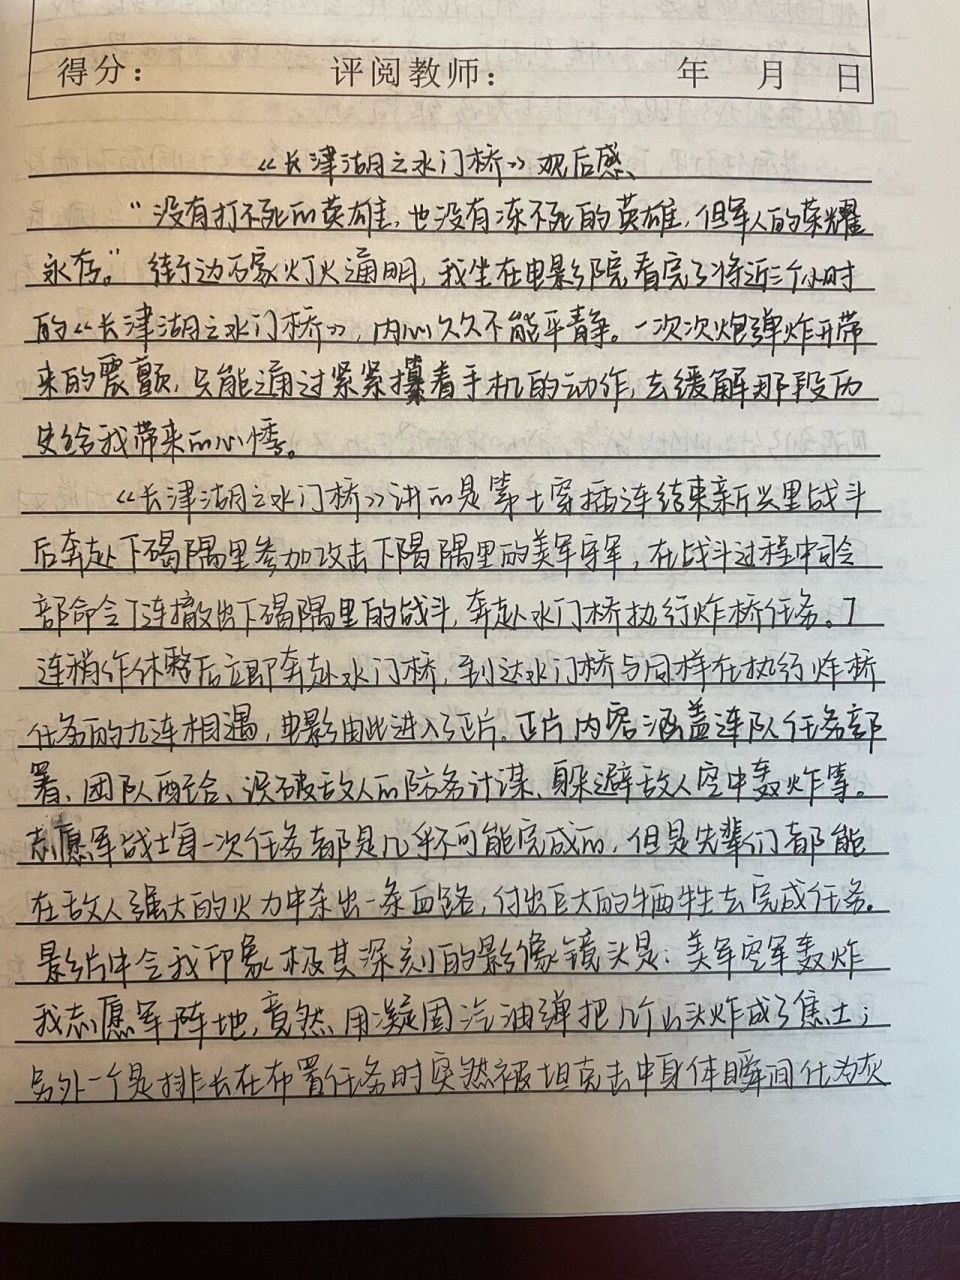 得分： 评阅教师： 年 月 日
《长津湖之水门桥》观后感
“没有打不死的英雄，也没有冻不死的英雄，但军人的荣耀
永存。”街边万家灯火通明，我坐在电影院看完了将近三个小时
的《长津湖之水门桥》，内心久久不能平静。一次次炮弹炸开带
来的震颤，只能通过紧紧攥着手机的动作，去缓解那段历
史给我带来的心悸。
《长津湖之水门桥》讲的是第七穿插连结束新兴里战斗
后奔赴下碣隅里参加攻击下碣隅里的美军守军，在战斗过程中司令
部命令7连撤出下碣隅里的战斗，奔赴水门桥执行炸桥任务。7
连稍作休整后立即奔赴水门桥，到达水门桥与同样在执行炸桥
任务的九连相遇，电影由此进入了正片。正片内容涵盖连队任务部
署、团队配合、识破敌人的防务计谋、躲避敌人空中轰炸等。
志愿军战士每一次任务都是几乎不可能完成的，但是先辈们都能
在敌人强大的火力中杀出一条血路，付出巨大的牺牲去完成任务。
影片中令我印象极其深刻的影像镜头是：美军空军轰炸
我志愿军阵地，竟然用凝固汽油弹把几个山头炸成了焦土；
另外一个是排长在布置任务时突然被坦克击中身体瞬间化为灰